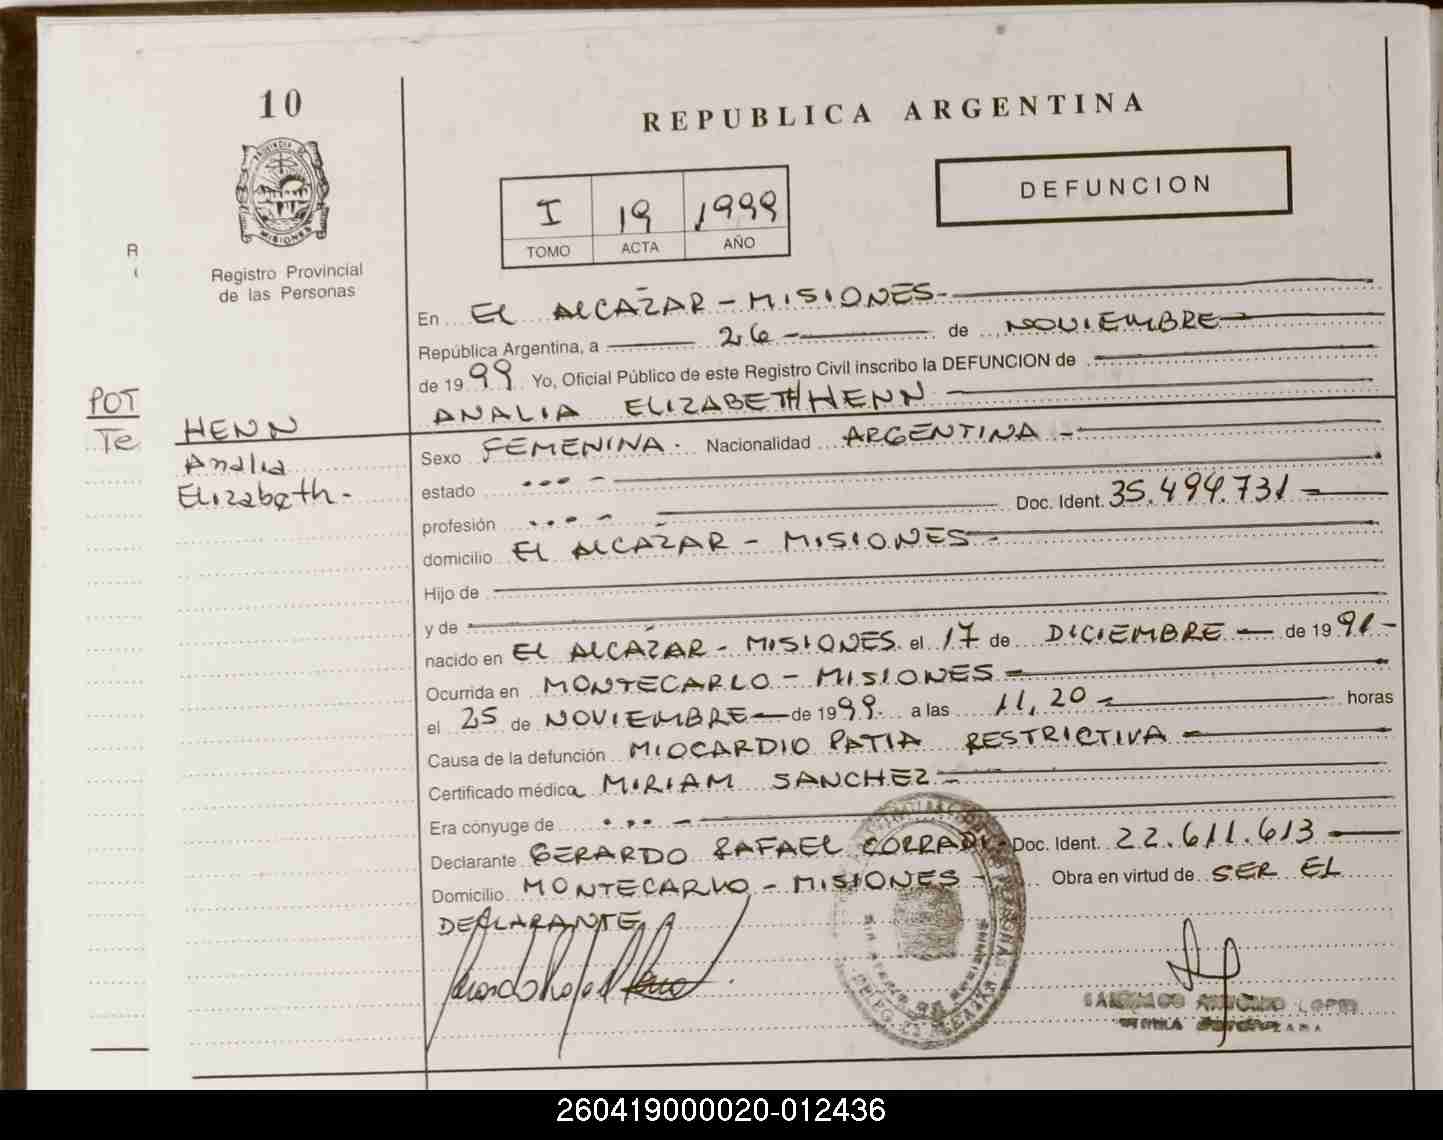 10
REPUBLICA ARGENTINA
PROVINCIA DE
MISIONES
Registro Provincial
de las Personas
DEFUNCION
I 19 1999
TOMO ACTA AÑO
R
POT
Te
HENN
Analia
Elizabeth.-
En EL ALCAZAR - MISIONES-
República Argentina, a 26 - de NOVIEMBRE
de 1999 Yo, Oficial Público de este Registro Civil inscribo la DEFUNCION de
ANALIA ELIZABETH HENN
Sexo FEMENINA. Nacionalidad ARGENTINA -
estado ... -
profesión ... - Doc. Ident. 35.494.731 -
domicilio EL ALCAZAR - MISIONES -
Hijo de
y de
nacido en EL ALCAZAR - MISIONES. el 17 de DICIEMBRE - de 1991-
Ocurrida en MONTECARLO - MISIONES -
el 25 de NOVIEMBRE - de 1999. a las 11,20 - horas
Causa de la defunción MIOCARDIO PATIA RESTRICTIVA -
Certificado médica MIRIAM SANCHEZ -
Era cónyuge de ... -
Declarante GERARDO RAFAEL CORRADI- Doc. Ident. 22.611.613 -
Domicilio MONTECARLO - MISIONES - Obra en virtud de SER EL
DECLARANTE
ANTONIO LOPEZ
260419000020-012436